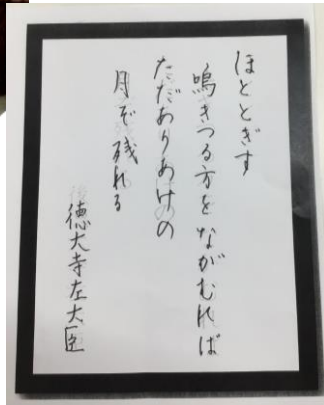 ほととぎす
鳴きつる方をながむれば
ただありあけの
月ぞ残れる
徳大寺左大臣